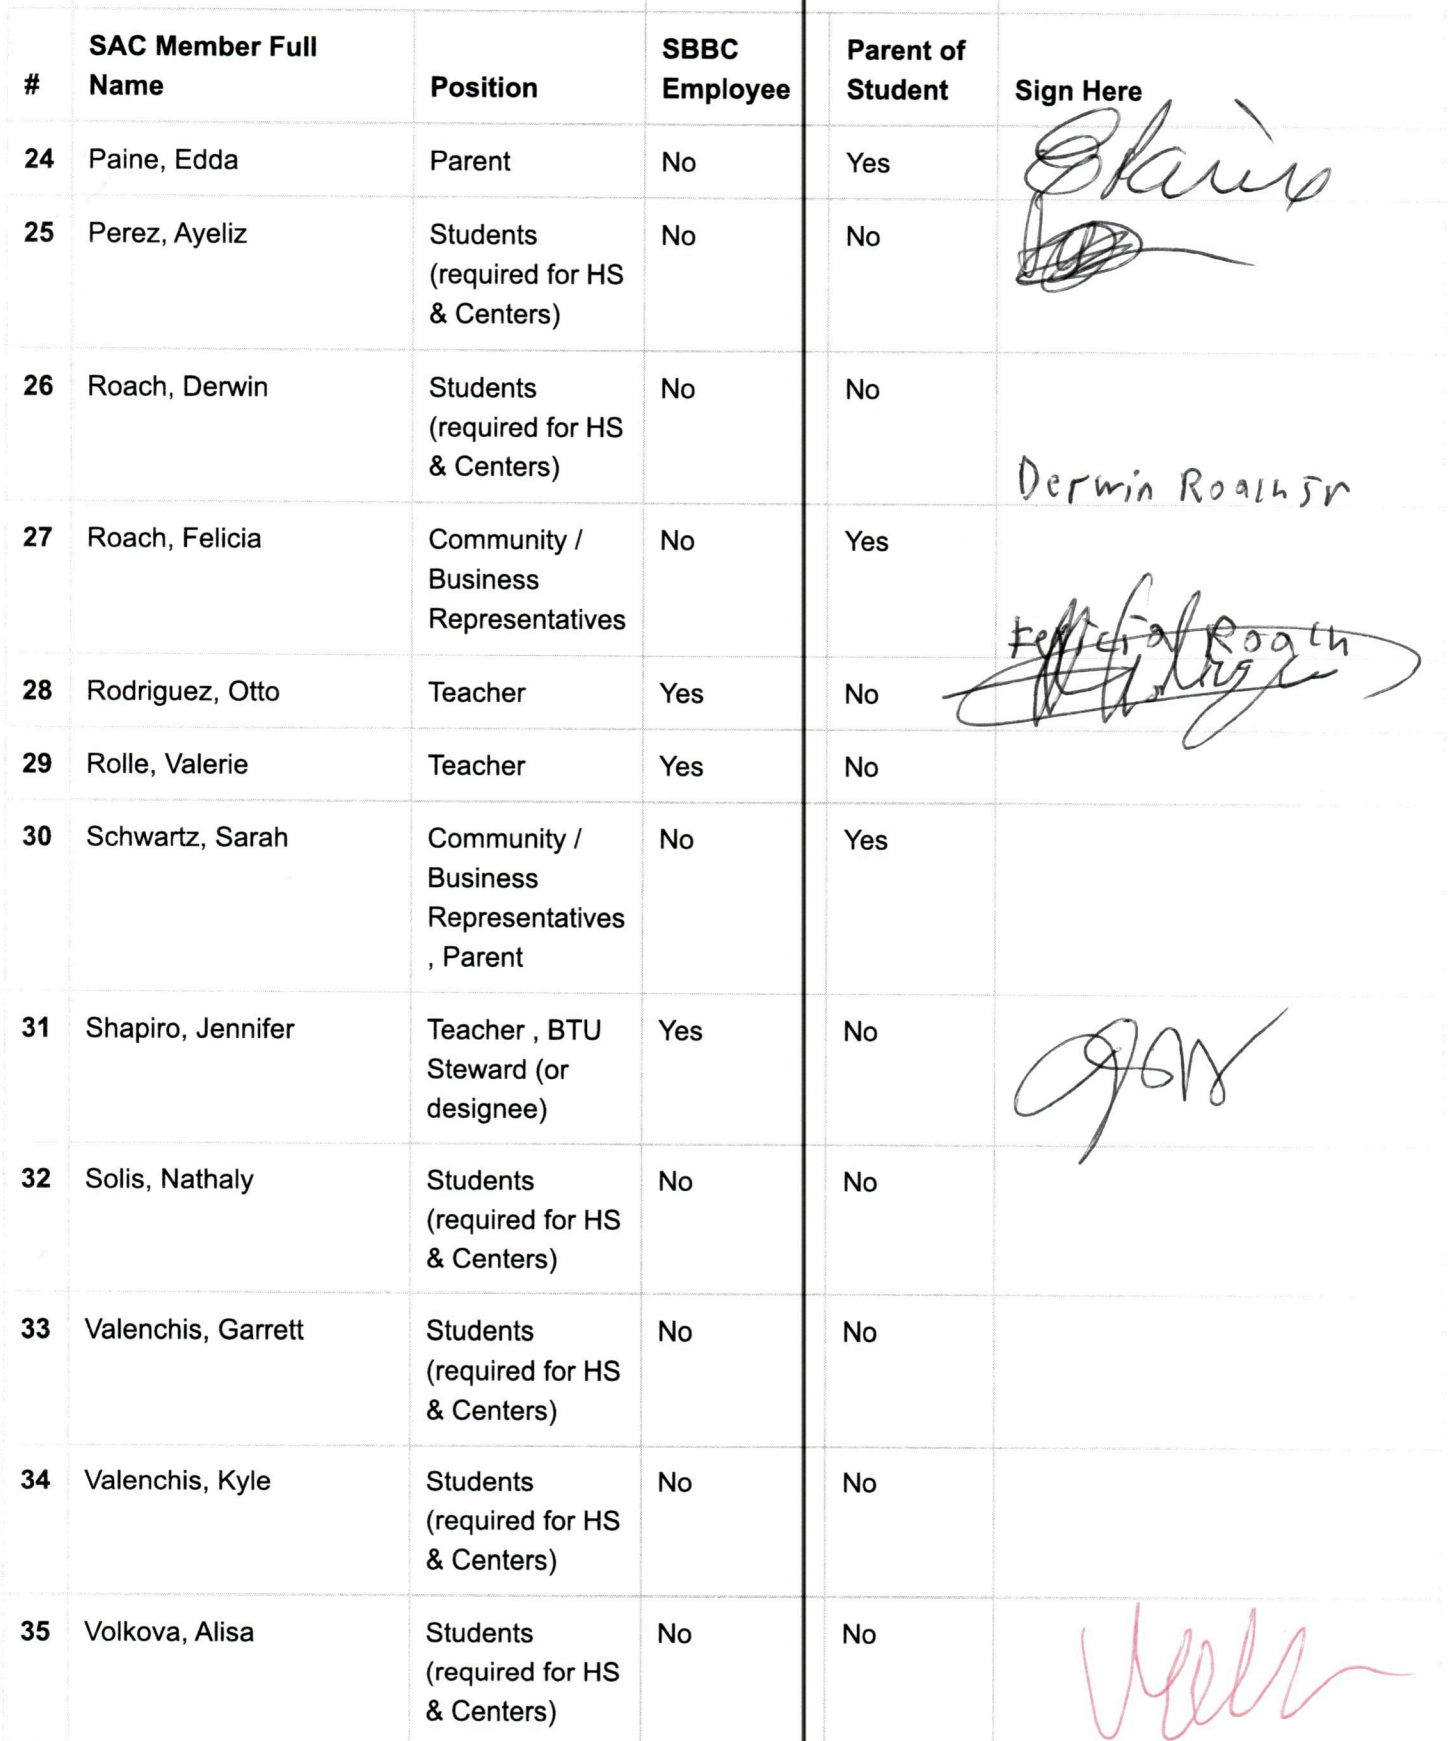 # SAC Member Full Name Position SBBC Employee Parent of Student Sign Here
24 Paine, Edda Parent No Yes
25 Perez, Ayeliz Students No No
(required for HS
& Centers)
26 Roach, Derwin Students No No
(required for HS
& Centers) Derwin Roach Jr
27 Roach, Felicia Community / No Yes
Business
Representatives Felicia Roach
28 Rodriguez, Otto Teacher Yes No
29 Rolle, Valerie Teacher Yes No
30 Schwartz, Sarah Community / No Yes
Business
Representatives
, Parent
31 Shapiro, Jennifer Teacher , BTU Yes No
Steward (or
designee)
32 Solis, Nathaly Students No No
(required for HS
& Centers)
33 Valenchis, Garrett Students No No
(required for HS
& Centers)
34 Valenchis, Kyle Students No No
(required for HS
& Centers)
35 Volkova, Alisa Students No No
(required for HS
& Centers)